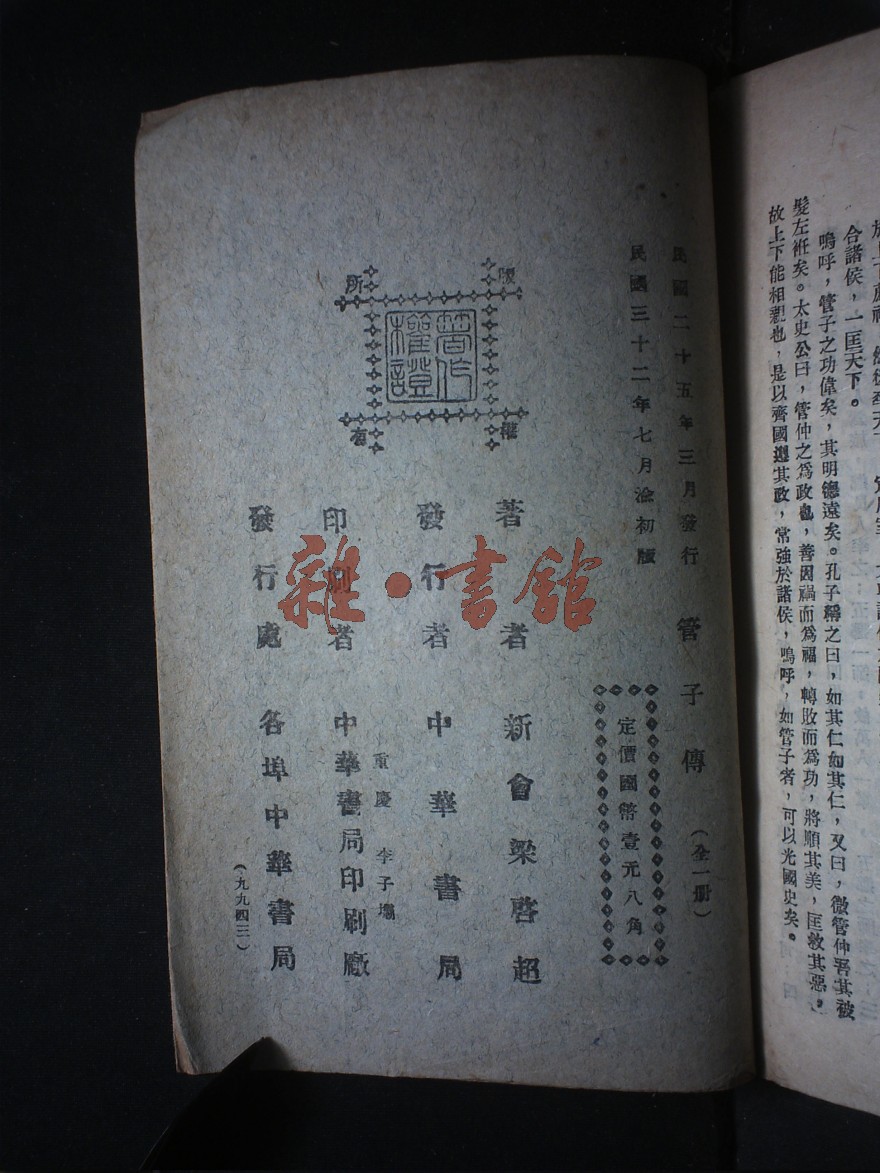 故上下能相親也，是以齊國遵其政，常強於諸侯，嗚呼，如管子者，可以光國史矣。
髮左衽矣。太史公曰，管仲之爲政也，善因禍而爲福，轉敗而爲功，將順其美，匡救其惡，
嗚呼，管子之功偉矣，其明德遠矣。孔子稱之曰，如其仁如其仁，又曰，微管仲吾其被
合諸侯，一匡天下。
民國二十五年三月發行
民國三十二年七月渝初版
管子傳（全一册）
定價國幣壹元八角
版權所有
著作權證
著者 新會梁啓超
發行者 中華書局
重慶 李子壩
印刷者 中華書局印刷廠
發行處 各埠中華書局
（九九四三）
雜·書館